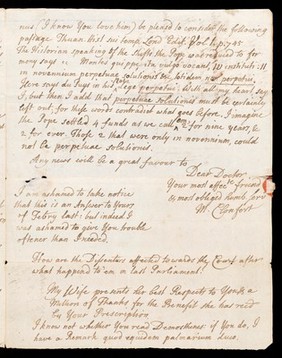 nus (I know you love him) be pleased to consider the following
passage Thuan. Hist. sui temp. Lond. Edit. Vol. 1. p. 745
The Historian speaking of the shifts the Pope was reduced to for
mony says :: Montes quippe, ita vulgo vocant, III instituti: II
in novennium perpetuae solutionis &c. ibidem non perpetui,
Here says du Puys in his note lege perpetui. With all my heart say
I, but then I add that perpetuae solutionis must be certainly
left out, for these words contradict what goes before. I imagine
the Pope settled 4 funds as we call 'em, 2 for nine years, &
2 for ever. Those 2 that were only in novennium, could
not be perpetuae solutionis.
Any news will be a great favour to
Dear Doctor
Your most affec.te friend
& most obliged humb. serv.
I am ashamed to take notice
that this is an Answer to Yours
of Febry last: but indeed I
was ashamed to give You trouble
oftener than I needed.
How are the Dissenters affected towards the Court after
what happen'd to 'em in last Parliament?
My Wife presents her best Respects to You with a
Return of Thanks for the Benefit she has rec'd
by Your Prescription
I know not whether You read Demosthenes: if You do, I
have a Remark quod equidem palmarium duco.